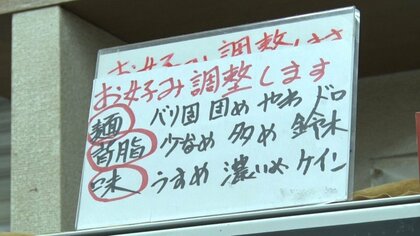 お好み調整します
お好み調整します
麺 バリ固 固め やわ ドロ
背脂 少なめ 多め 鈴木
味 うすめ 濃いめ ケイン